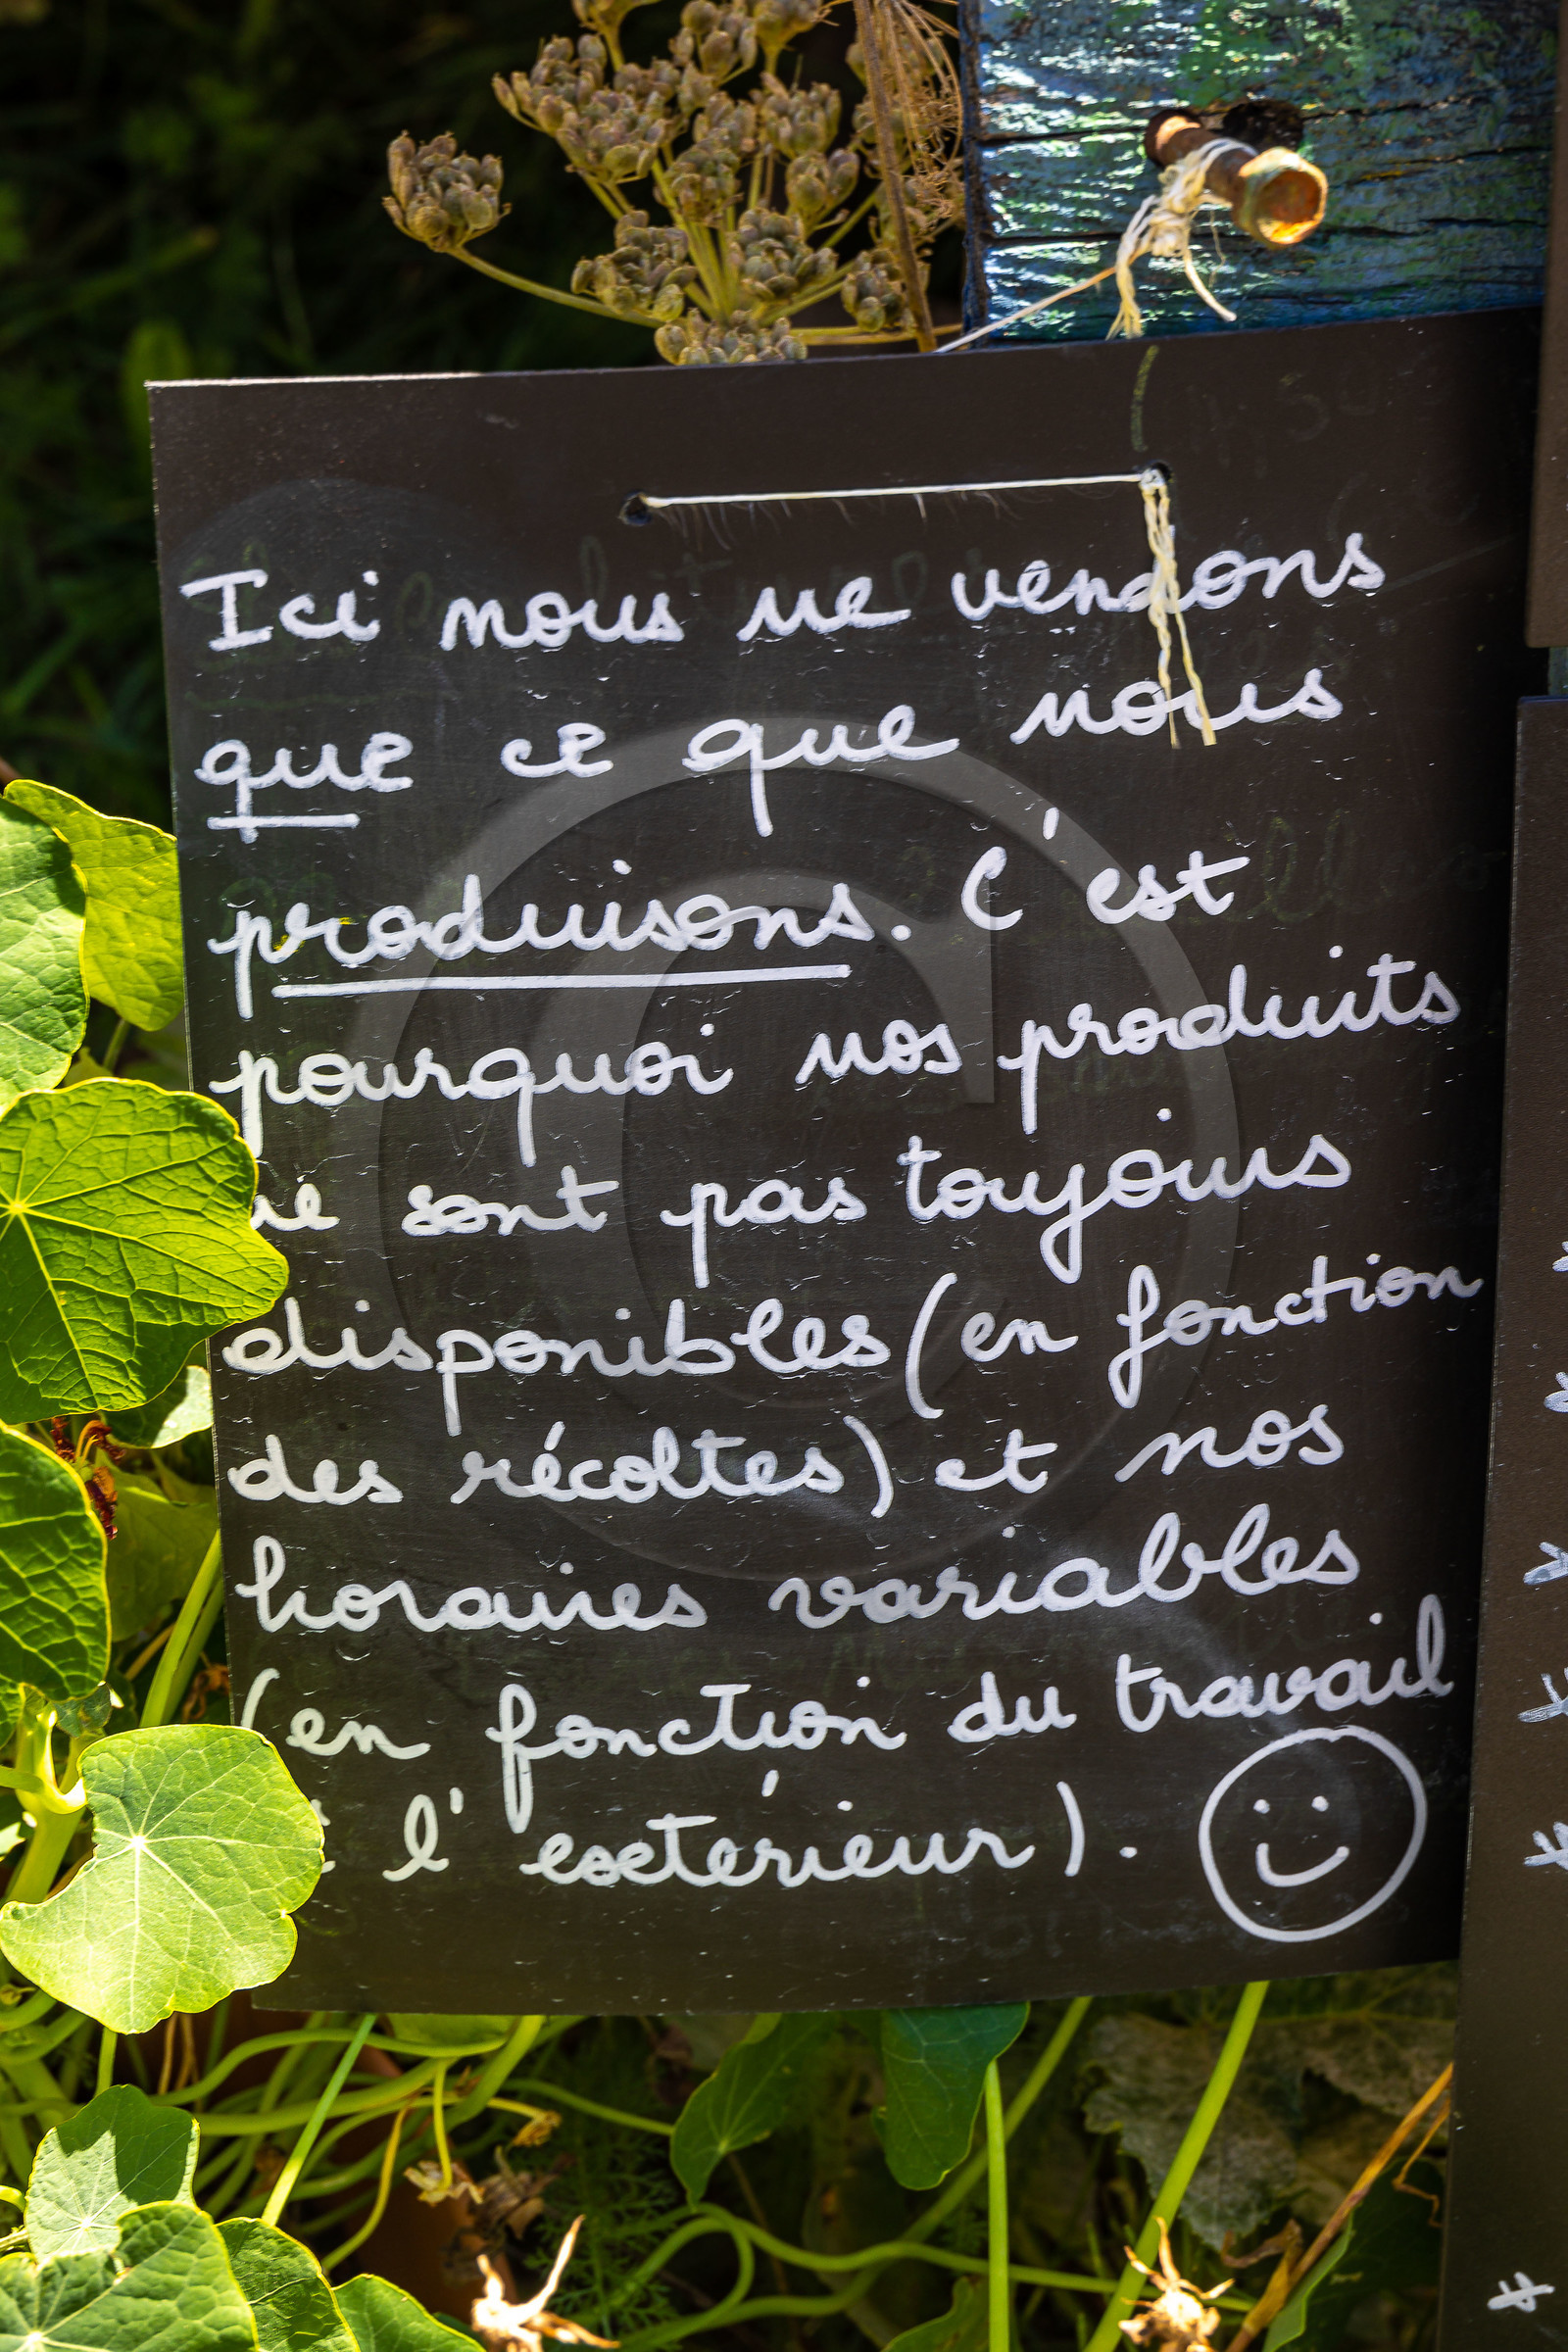 Ici nous ne vendons
que ce que nous
produisons. C'est
pourquoi nos produits
ne sont pas toujours
disponibles (en fonction
des récoltes) et nos
horaires variables
(en fonction du travail
à l'extérieur).